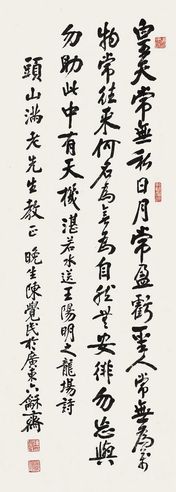 皇天常無私日月常盈虧聖人常無為萬
物常往來何名為無為自然無安排勿忘與
勿助此中有天機湛若水送王陽明之龍場詩
頭山滿老先生教正 晚生陳覺民於廣東六蘇齋